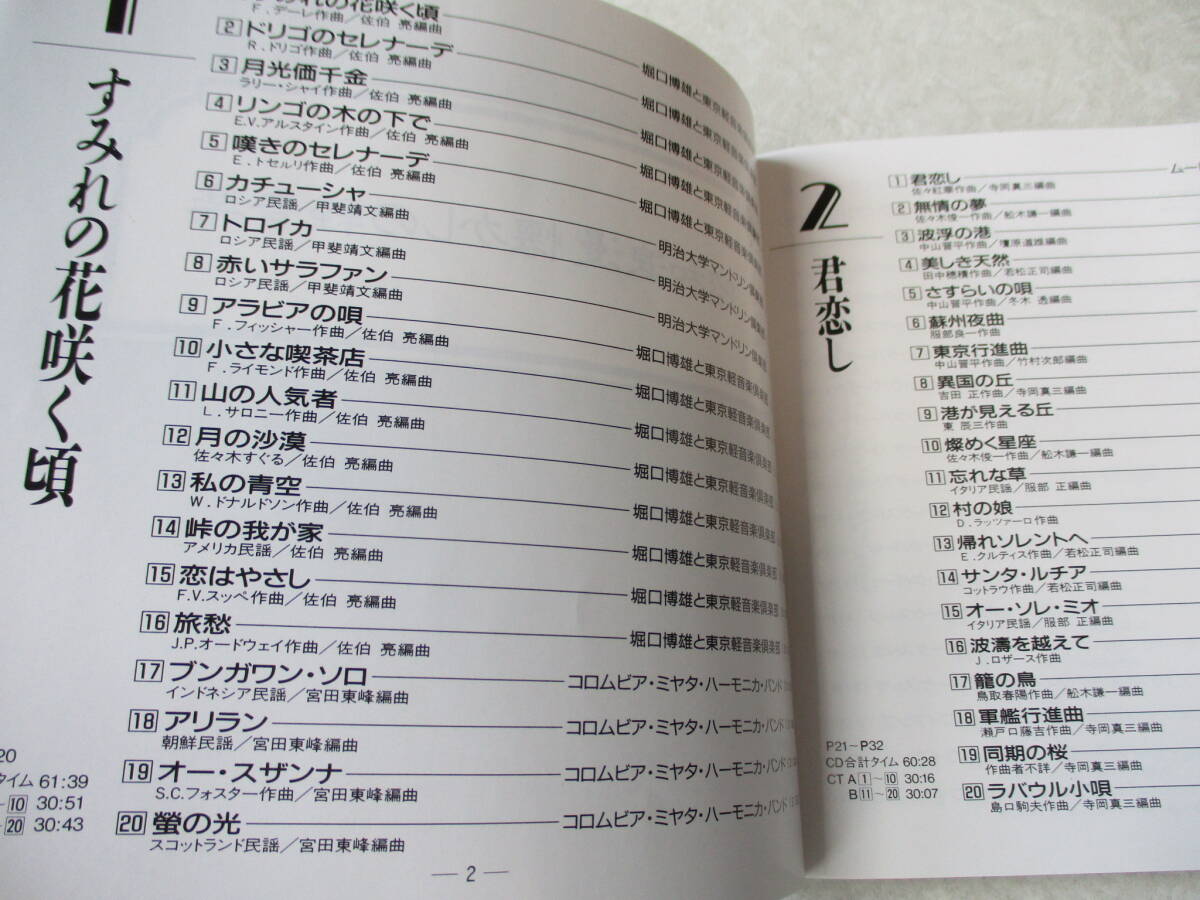 すみれの花咲く頃
の花咲く頃
F．デーレ作曲／佐伯 亮編曲
2 ドリゴのセレナーデ
R．ドリゴ作曲／佐伯 亮編曲 堀口博雄と東京軽音楽
3 月光価千金
ラリー・シャイ作曲／佐伯 亮編曲 堀口博雄と東京軽音楽
4 リンゴの木の下で 堀口博雄と東京軽音楽
E.V.アルスタイン作曲／佐伯 亮編曲
5 嘆きのセレナーデ 堀口博雄と東京軽音楽
E．トセルリ作曲／佐伯 亮編曲
6 カチューシャ 堀口博雄と東京軽音楽
ロシア民謡／甲斐靖文編曲
7 トロイカ 明治大学マンドリン倶楽
ロシア民謡／甲斐靖文編曲
8 赤いサラファン 明治大学マンドリン倶楽部
ロシア民謡／甲斐靖文編曲
9 アラビアの唄 明治大学マンドリン倶楽部
F．フィッシャー作曲／佐伯 亮編曲
10 小さな喫茶店 堀口博雄と東京軽音楽倶楽部
F．ライモンド作曲／佐伯 亮編曲
11 山の人気者 堀口博雄と東京軽音楽倶楽部
L．サロニー作曲／佐伯 亮編曲
12 月の沙漠 堀口博雄と東京軽音楽倶楽部
佐々木すぐる／佐伯 亮編曲
13 私の青空 堀口博雄と東京軽音楽倶楽部
W．ドナルドソン作曲／佐伯 亮編曲
14 峠の我が家 堀口博雄と東京軽音楽倶楽部
アメリカ民謡／佐伯 亮編曲
15 恋はやさし 堀口博雄と東京軽音楽倶楽部
F.V.スッペ作曲／佐伯 亮編曲
16 旅愁 堀口博雄と東京軽音楽倶楽部
J.P.オードウェイ作曲／佐伯 亮編曲
17 ブンガワン・ソロ コロムビア・ミヤタ・ハーモニカ・バンド
インドネシア民謡／宮田東峰編曲
18 アリラン コロムビア・ミヤタ・ハーモニカ・バンド
朝鮮民謡／宮田東峰編曲
19 オー・スザンナ コロムビア・ミヤタ・ハーモニカ・バンド
S.C.フォスター作曲／宮田東峰編曲
20 螢の光 コロムビア・ミヤタ・ハーモニカ・バンド
スコットランド民謡／宮田東峰編曲
20
タイム 61:39
～10 30:51
～20 30:43
— 2 —
2
君恋し
1 君恋し ムー
佐々紅華作曲／寺岡真三編曲
2 無情の夢
佐々木俊一作曲／舩木謙一編曲
3 波浮の港
中山晋平作曲／檀原道雄編曲
4 美しき天然
田中穂積作曲／若松正司編曲
5 さすらいの唄
中山晋平作曲／冬木 透編曲
6 蘇州夜曲
服部良一作曲
7 東京行進曲
中山晋平作曲／竹村次郎編曲
8 異国の丘
吉田 正作曲／寺岡真三編曲
9 港が見える丘
東 辰三作曲
10 燦めく星座
佐々木俊一作曲／舩木謙一編曲
11 忘れな草
イタリア民謡／服部 正編曲
12 村の娘
D．ラッツァーロ作曲
13 帰れソレントへ
E．クルティス作曲／若松正司編曲
14 サンタ・ルチア
コットラウ作曲／若松正司編曲
15 オー・ソレ・ミオ
イタリア民謡／服部 正編曲
16 波濤を越えて
J．ロザース作曲
17 籠の鳥
鳥取春陽作曲／舩木謙一編曲
18 軍艦行進曲
瀬戸口藤吉作曲／寺岡真三編曲
19 同期の桜
作曲者不詳／寺岡真三編曲
20 ラバウル小唄
島口駒夫作曲／寺岡真三編曲
P21～P32
CD合計タイム 60:28
CT A 1～10 30:16
B 11～20 30:07